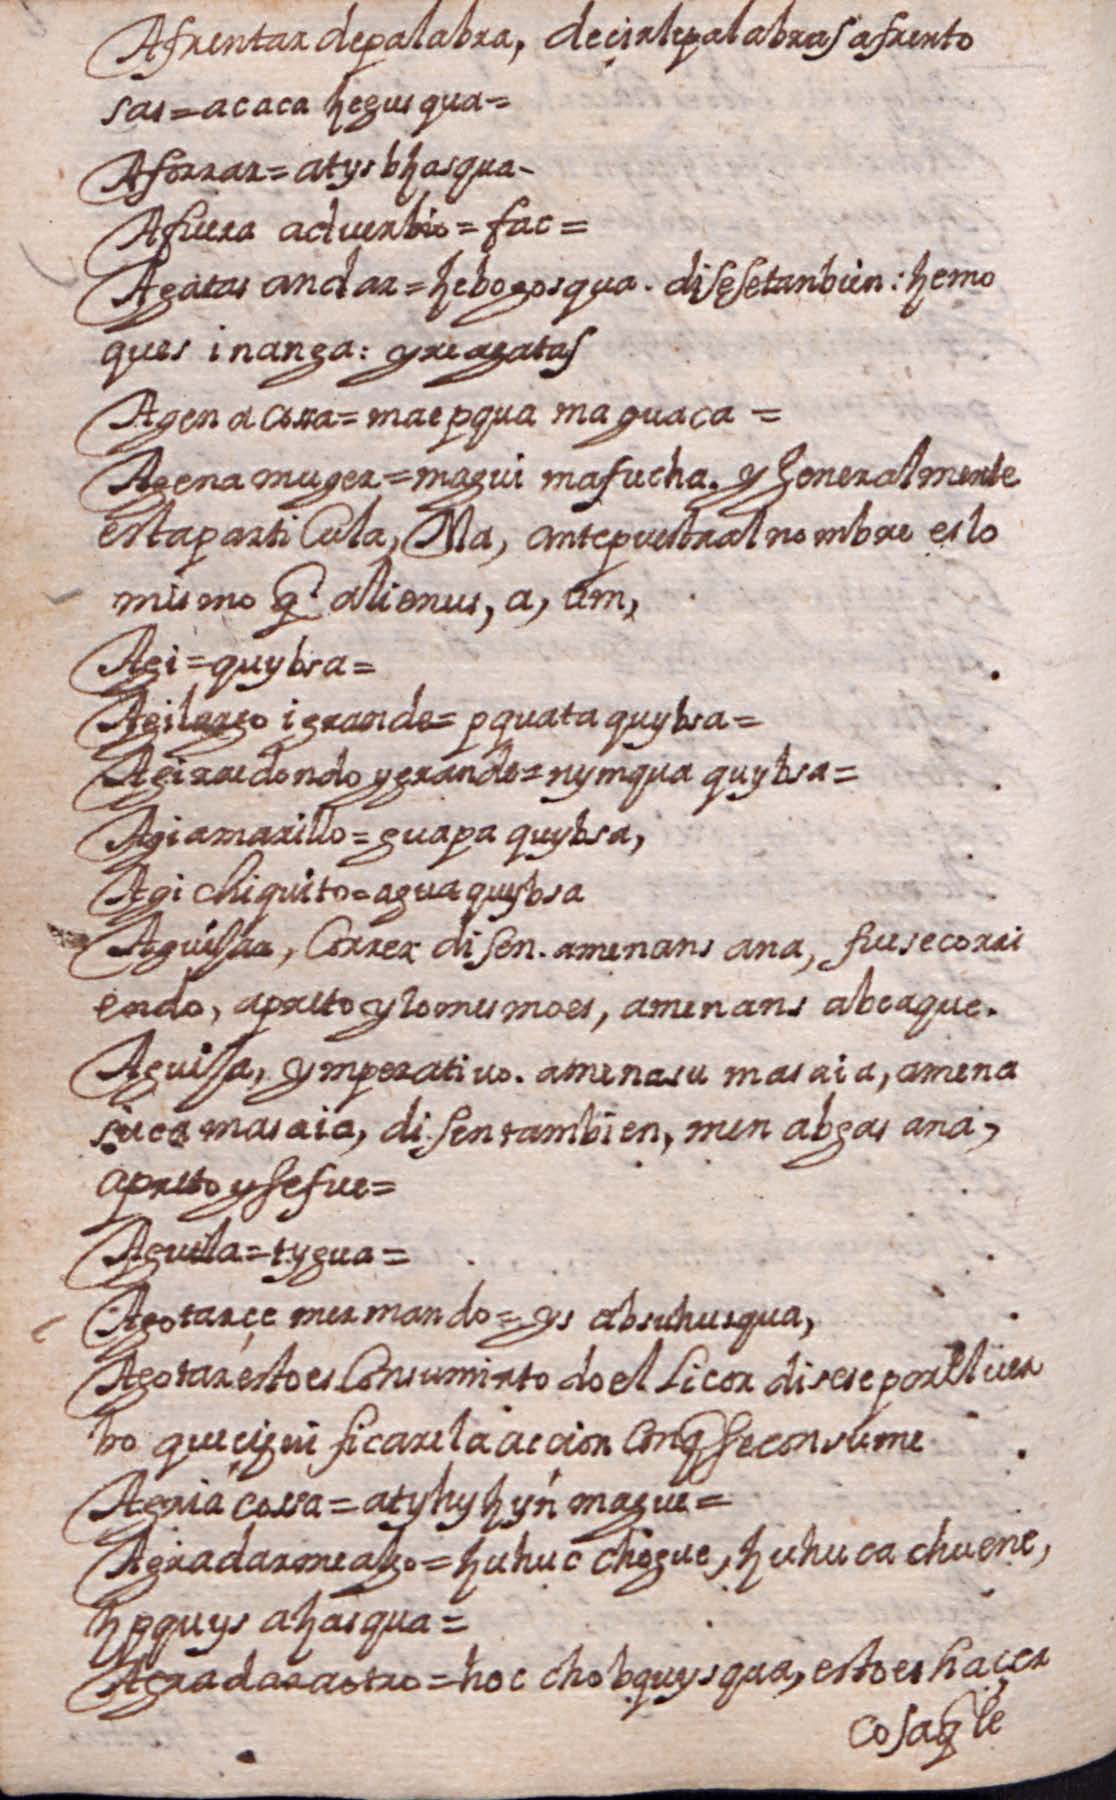 Afrentar depalabra, decirlepalabras afrento
sas = acaca hegusqua =
Aforrar = atys bhasqua -
Afuera aduerbio = fac =
Agatas andar = hebogosqua. disesetanbien: hemo
ques inanga: yreagatas
Agena cossa = maepqua maguaca =
Agena muger = magui mafucha. y generalmente
estaparticula, Ma, antepuestaalnombre eslo
mismo q.e alienus, a, um,
Agi = quybsa =
Agilargo igrande = pquata quybsa =
Agiredondo ygrande = nymqua quybsa =
Agiamarillo = guapa quybsa,
Agi chiquito = agua quybsa
Aguissa, Correr disen. amenans ana, fuesecorri
endo, apreto ylomesmoes, amenans abcaque.
Aguissa, ymperatiuo. amenasu masaia, amena
suca masaia, disentambien, men abgas ana,
apreto ysefue =
Aguila = tygua =
Agotarçe mermando = ys absuhusqua,
Agotar estoes Consumirto doel Licor disese porel uer
bo queçigni ficarela accion Conq seconsume
Agria cossa = atyhyhyn mague =
Agradarmealgo = huhuc chogue, huhuca chuene,
hpquys ahasqua =
Agradaraotro = hoc chobquysqua, estoes haçer
cosaq le